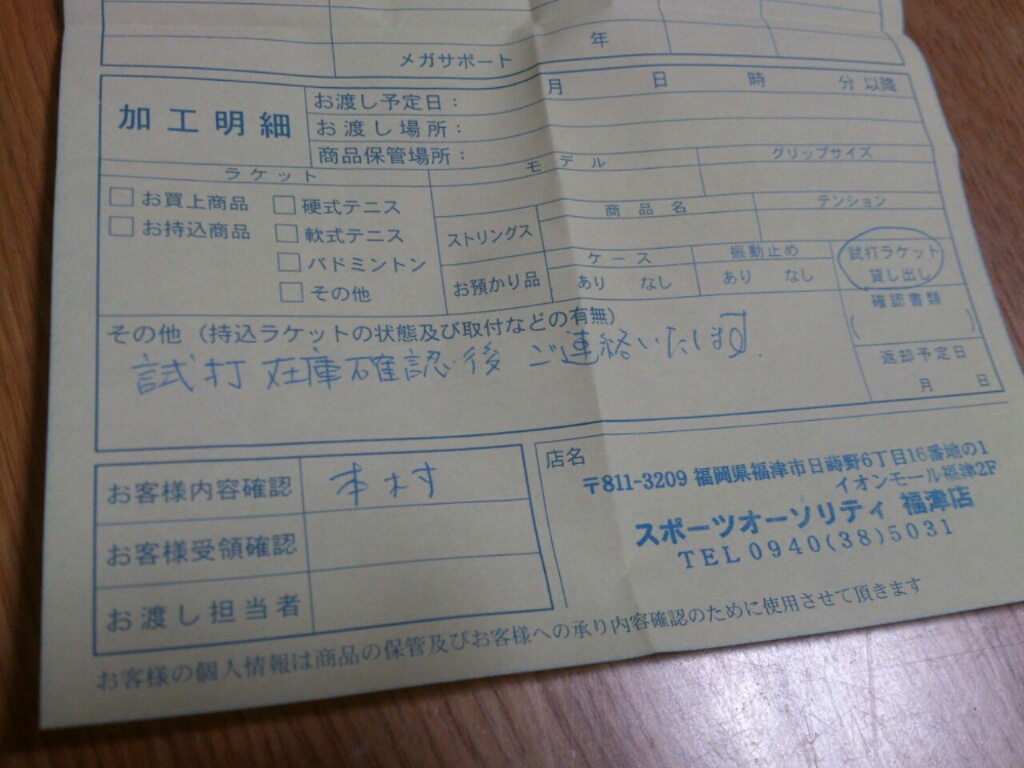 年
メガサポート
加工明細
お渡し予定日： 月 日 時 分 以降
お渡し場所：
商品保管場所：
ラケット
モデル
グリップサイズ
お買上商品
硬式テニス
お持込商品
軟式テニス
バドミントン
その他
ストリングス
商品名
テンション
お預かり品
ケース
あり なし
振動止め
あり なし
試打ラケット
貸し出し
確認書類
( )
返却予定日
月 日
その他（持込ラケットの状態及び取付などの有無）
試打在庫確認後 ご連絡いたします.
お客様内容確認 本村
お客様受領確認
お渡し担当者
店名
〒811-3209 福岡県福津市日蒔野6丁目16番地の1
イオンモール福津2F
スポーツオーソリティ 福津店
TEL 0940(38)5031
お客様の個人情報は商品の保管及びお客様への承り内容確認のために使用させて頂きます